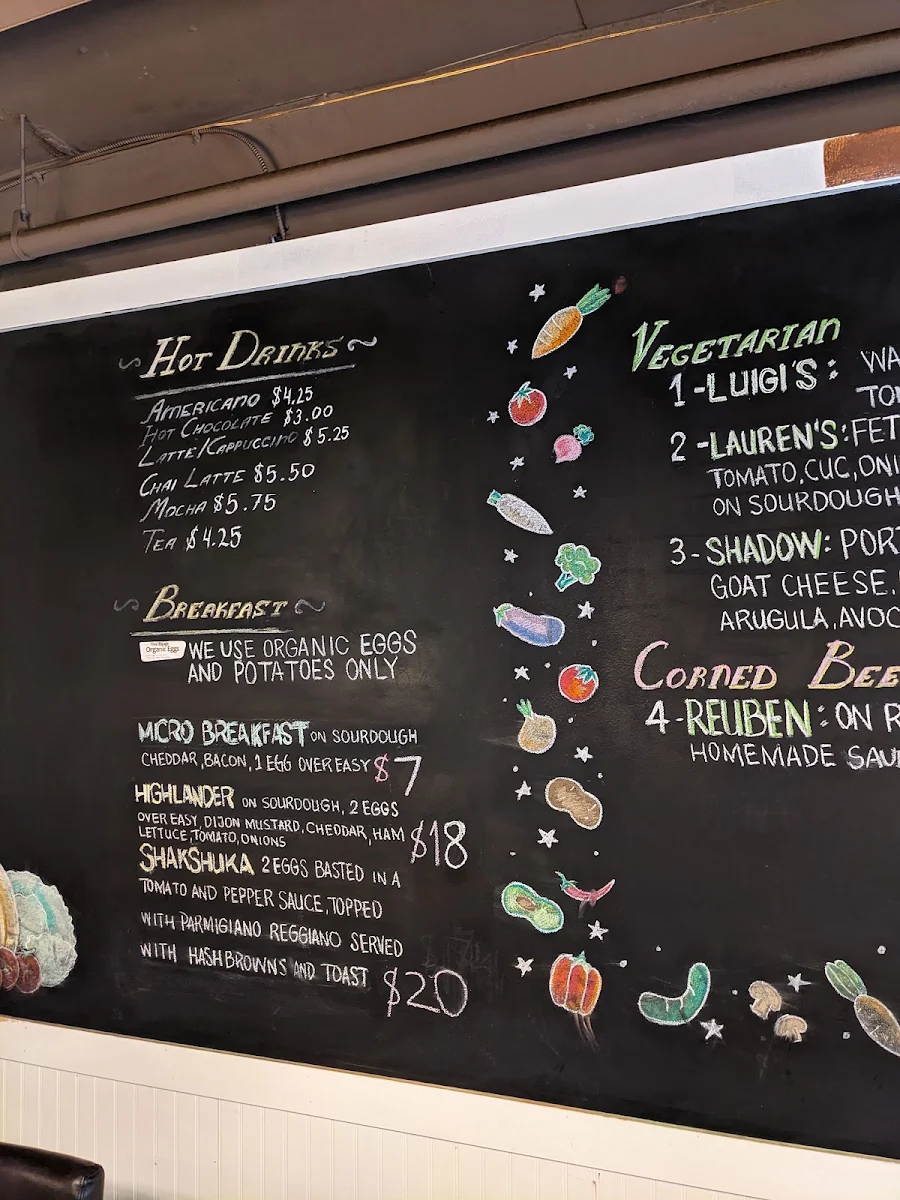 Hot Drinks
Americano $4.25
Hot Chocolate $3.00
Latte/Cappuccino $5.25
Chai Latte $5.50
Mocha $5.75
Tea $4.25
Breakfast
Organic Eggs
WE USE ORGANIC EGGS
AND POTATOES ONLY
MICRO BREAKFAST ON SOURDOUGH
CHEDDAR, BACON, 1 EGG OVER EASY $7
HIGHLANDER ON SOURDOUGH, 2 EGGS
OVER EASY, DIJON MUSTARD, CHEDDAR, HAM
LETTUCE, TOMATO, ONIONS $18
SHAKSHUKA 2 EGGS BASTED IN A
TOMATO AND PEPPER SAUCE, TOPPED
WITH PARMIGIANO REGGIANO SERVED
WITH HASHBROWNS AND TOAST $20
Vegetarian
1-LUIGI'S: WA
TO
2-LAUREN'S: FET
TOMATO, CUC, ONI
ON SOURDOUGH
3-SHADOW: PORT
GOAT CHEESE,
ARUGULA, AVOC
Corned Bee
4-REUBEN: ON R
HOMEMADE SAU